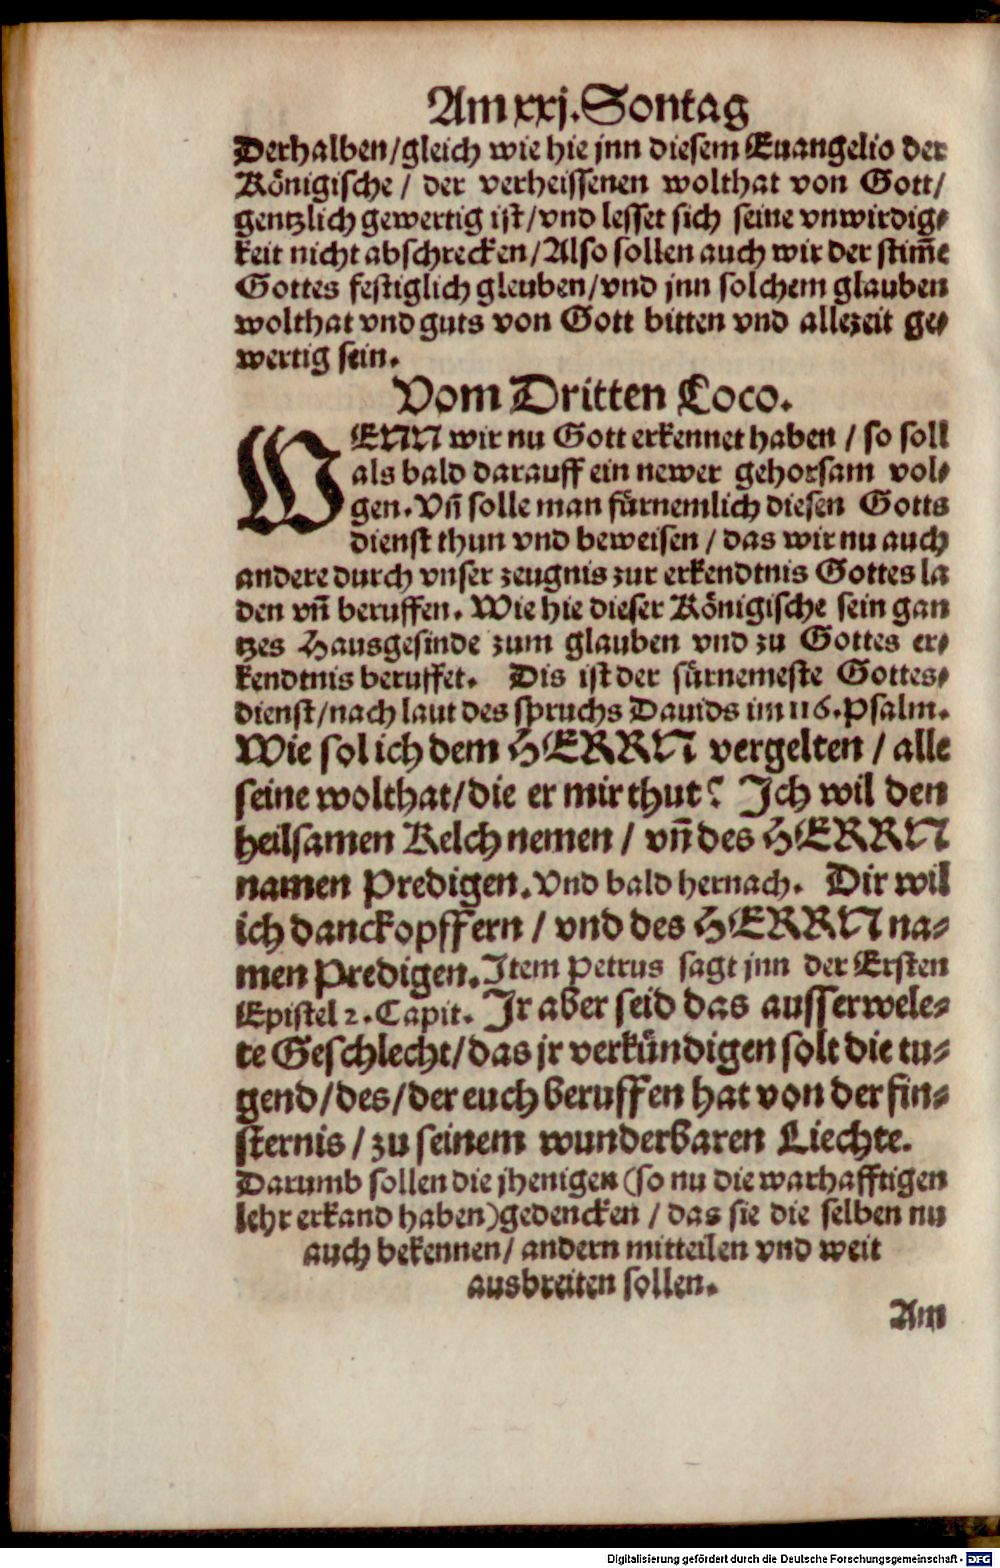 Am xxj. Sontag
Derhalben/gleich wie hie jnn diesem Euangelio der
Königische / der verheissenen wolthat von Gott/
gentzlich gewertig ist/vnd lesset sich seine vnwirdig⸗
keit nicht abschrecken/Also sollen auch wir der stim̃e
Gottes festiglich gleuben/vnd jnn solchem glauben
wolthat vnd guts von Gott bitten vnd allezeit ge⸗
wertig sein.
Vom Dritten Loco.
WENN wir nu Gott erkennet haben / so soll
als bald darauff ein newer gehorsam vol⸗
gen. Vñ solle man fürnemlich diesen Gotts
dienst thun vnd beweisen / das wir nu auch
andere durch vnser zeugnis zur erkendtnis Gottes la
den vñ beruffen. Wie hie dieser Königische sein gan
tzes Hausgesinde zum glauben vnd zu Gottes er⸗
kendtnis beruffet. Dis ist der fürnemeste Gottes⸗
dienst/nach laut des spruchs Dauids im 116. Psalm.
Wie sol ich dem HERRN vergelten / alle
seine wolthat/die er mir thut? Ich wil den
heilsamen Kelch nemen / vñ des HERRN
namen Predigen. Vnd bald hernach. Dir wil
ich danckopffern / vnd des HERRN na⸗
men Predigen. Item Petrus sagt jnn der Ersten
Epistel 2. Capit. Jr aber seid das ausserwele⸗
te Geschlecht/das jr verkündigen solt die tu⸗
gend/des/der euch beruffen hat von der fin⸗
sternis / zu seinem wunderbaren Liechte.
Darumb sollen die jhenigen (so nu die warhafftigen
lehr erkand haben)gedencken / das sie die selben nu
auch bekennen/ andern mitteilen vnd weit
ausbreiten sollen.
Am
Digitalisierung gefördert durch die Deutsche Forschungsgemeinschaft - DFG